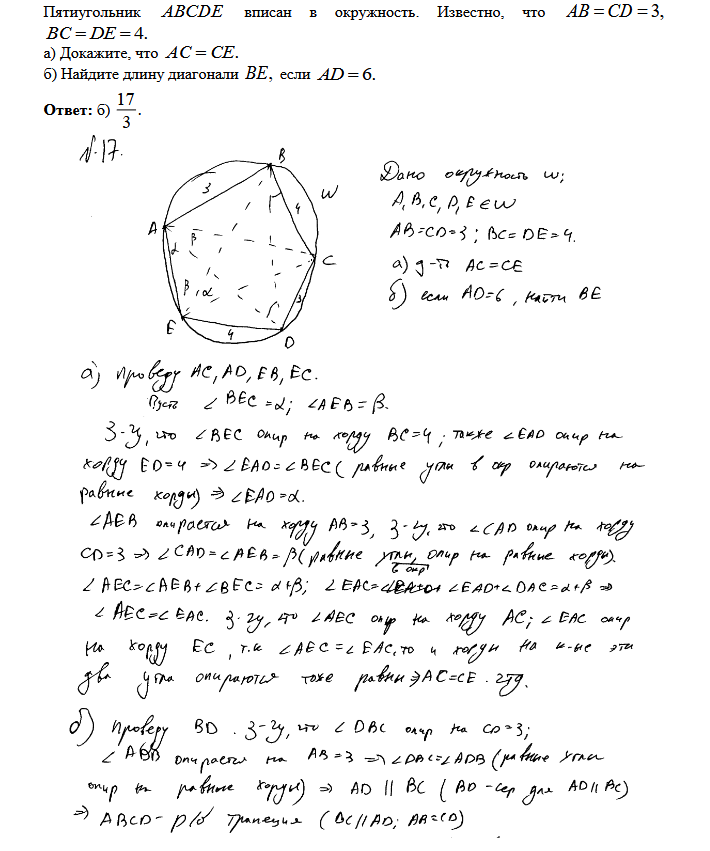 Пятиугольник ABCDE вписан в окружность. Известно, что AB = CD = 3,
BC = DE = 4.
а) Докажите, что AC = CE.
б) Найдите длину диагонали BE, если AD = 6.
Ответ: б) 17/3.
N.17.
B
3
W
4
A
α
β
C
β, α
3
E
4
D
Дано окружность w;
A, B, C, D, E ∈ W
AB=CD=3; BC=DE=4.
а) д-ть AC=CE
б) если AD=6, найти BE
а) Проведу AC, AD, EB, EC.
Пусть ∠BEC=α; ∠AEB=β.
З-чу, что ∠BEC опир на хорду BC=4; также ∠EAD опир на
хорду ED=4 => ∠EAD=∠BEC (равные углы в окр опираются на
равные хорды) => ∠EAD=α.
∠AEB опирается на хорду AB=3, З-чу, что ∠CAD опир на хорду
CD=3 => ∠CAD=∠AEB=β (равные углы, опир на равные хорды).
в окр
∠AEC=∠AEB+∠BEC=α+β; ∠EAC= ∠EAD+∠DAC=α+β =>
∠AEC=∠EAC. З-чу, что ∠AEC опир на хорду AC; ∠EAC опир
на хорду EC, т.к ∠AEC=∠EAC, то и хорды на к-ые эти
два угла опираются тоже равны => AC=CE. чтд.
б) Проведу BD. З-чу, что ∠DBC опир на CD=3;
∠ADB опирается на AB=3 => ∠DBC=∠ADB (равные углы
опир на равные хорды) => AD || BC (BD - сек для AD || BC)
=> ABCD - р/б трапеция (BC || AD; AB=CD)